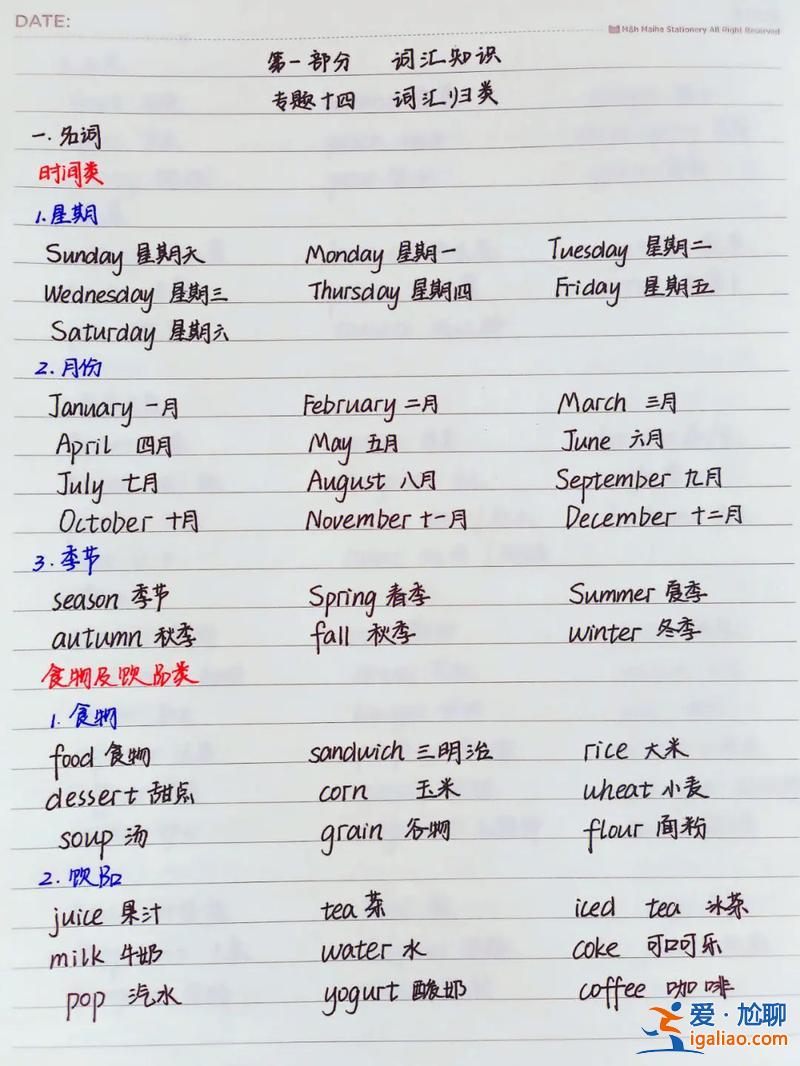 DATE:
Hāh Haiha Stationery All Right Reserved
第一部分 词汇知识
专题十四 词汇归类
一.名词
时间类
1.星期
Sunday 星期天 Monday 星期一 Tuesday 星期二
Wednesday 星期三 Thursday 星期四 Friday 星期五
Saturday 星期六
2.月份
January 一月 February 二月 March 三月
April 四月 May 五月 June 六月
July 七月 August 八月 September 九月
October 十月 November 十一月 December 十二月
3.季节
season 季节 Spring 春季 Summer 夏季
autumn 秋季 fall 秋季 winter 冬季
食物及饮品类
1.食物
food 食物 sandwich 三明治 rice 大米
dessert 甜点 corn 玉米 wheat 小麦
soup 汤 grain 谷物 flour 面粉
2.饮品
juice 果汁 tea 茶 iced tea 冰茶
milk 牛奶 water 水 coke 可口可乐
pop 汽水 yogurt 酸奶 coffee 咖啡
爱·尬聊
igaliao.com